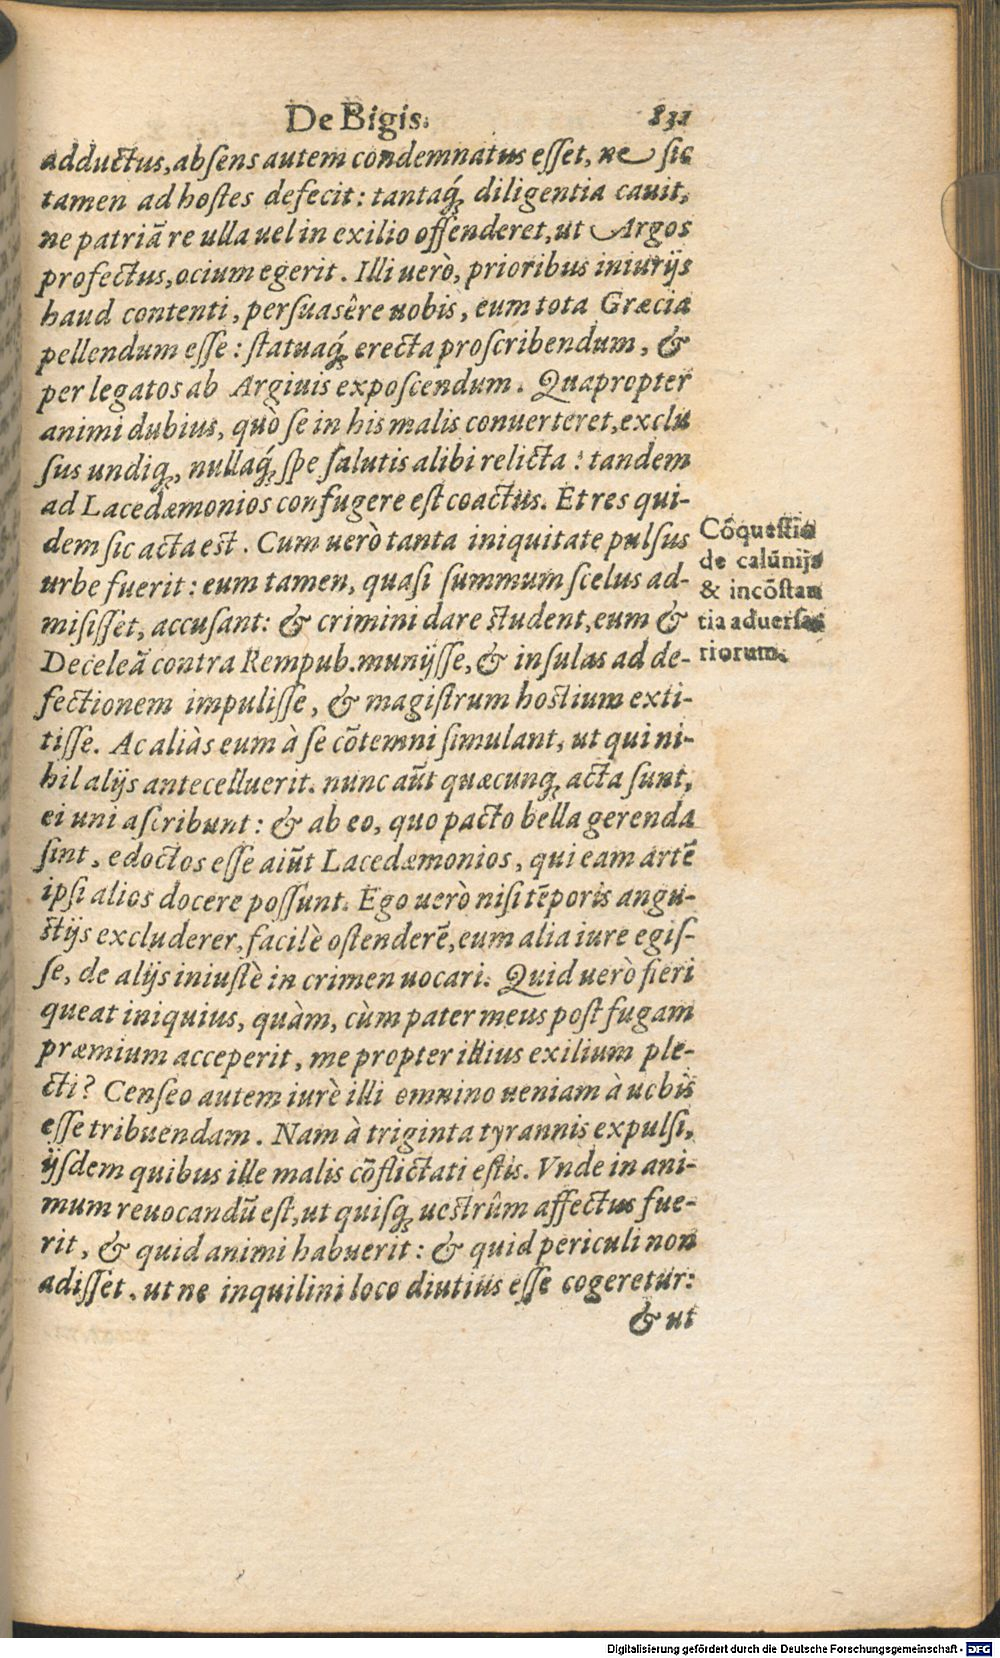 De Bigis. 831
adductus, absens autem condemnatus esset, ne sic
tamen ad hostes defecit: tantaq́ꝫ diligentia cauit,
ne patriã re ulla uel in exilio offenderet, ut Argos
profectus, ocium egerit. Illi uerò, prioribus iniurijs
haud contenti, persuasêre uobis, eum tota Græcia
pellendum esse: statuaq́ꝫ erecta proscribendum, &
per legatos ab Argiuis exposcendum. Quapropter
animi dubius, quò se in his malis conuerteret, exclu
sus undiqꝫ, nullaq́ꝫ spe salutis alibi relicta: tandem
ad Lacedæmonios confugere est coactus. Et res qui-
dem sic acta est. Cum uerò tanta iniquitate pulsus
urbe fuerit: eum tamen, quasi summum scelus ad-
misisset, accusant: & crimini dare student, eum &
Deceleã contra Rempub. munijsse, & insulas ad de-
fectionem impulisse, & magistrum hostium exti-
tisse. Ac aliàs eum à se cõtemni simulant, ut qui ni-
hil alijs antecelluerit. nunc aũt quæcunqꝫ acta sunt,
ei uni ascribunt: & ab eo, quo pacto bella gerenda
sint, edoctos esse aiũt Lacedæmonios, qui eam artẽ
ipsi alios docere possunt. Ego uerò nisi tẽporis angu-
stijs excluderer, facilè ostenderẽ, eum alia iure egis-
se, de alijs iniustè in crimen uocari. Quid uerò fieri
queat iniquius, quàm, cùm pater meus post fugam
præmium acceperit, me propter illius exilium ple-
cti? Censeo autem iurè illi omnino ueniam à uobis
esse tribuendam. Nam à triginta tyrannis expulsi,
ijsdem quibus ille malis cõflictati estis. Vnde in ani-
mum reuocandũ est, ut quisqꝫ uestrûm affectus fue-
rit, & quid animi habuerit: & quid periculi non
adisset, ut ne inquilini loco diutius esse cogeretur:
& ut
Cõquestio
de calũnijs
& incõstan
tia aduersa
riorum.
Digitalisierung gefördert durch die Deutsche Forschungsgemeinschaft - DFG